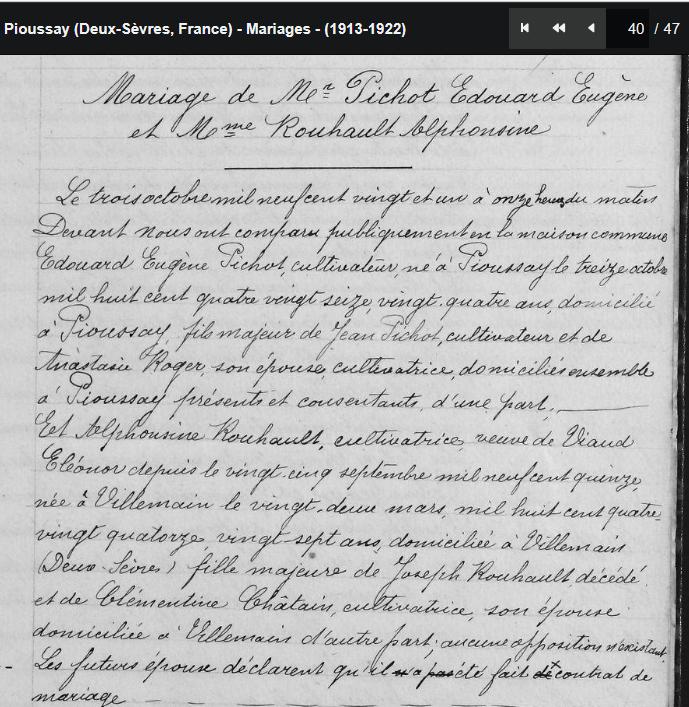 Pioussay (Deux-Sèvres, France) - Mariages - (1913-1922)
40 / 47
Mariage de Mr Pichot Edouard Eugène
et Mme Rouhault Alphonsine
Le trois octobre mil neuf cent vingt et un à onze heures du matin
Devant nous ont comparu publiquement en la maison commune
Edouard Eugène Pichot, cultivateur, né à Pioussay le treize octobre
mil huit cent quatre vingt seize, vingt-quatre ans, domicilié
à Pioussay, fils majeur de Jean Pichot, cultivateur et de
Anastasie Roger, son épouse, cultivatrice, domiciliés ensemble
à Pioussay présents et consentants, d'une part,
Et Alphonsine Rouhault, cultivatrice, veuve de Viaud
Eléonor depuis le vingt-cinq septembre mil neuf cent quinze,
née à Villemain le vingt-deux mars, mil huit cent quatre-
vingt quatorze, vingt-sept ans, domiciliée à Villemain
(Deux-Sèvres) fille majeure de Joseph Rouhault, décédé
et de Clémentine Châtain, cultivatrice, son épouse
domiciliée à Villemain d'autre part; aucune opposition n'existant.
Les futurs époux déclarent qu'il n'a pas été fait de contrat de
mariage